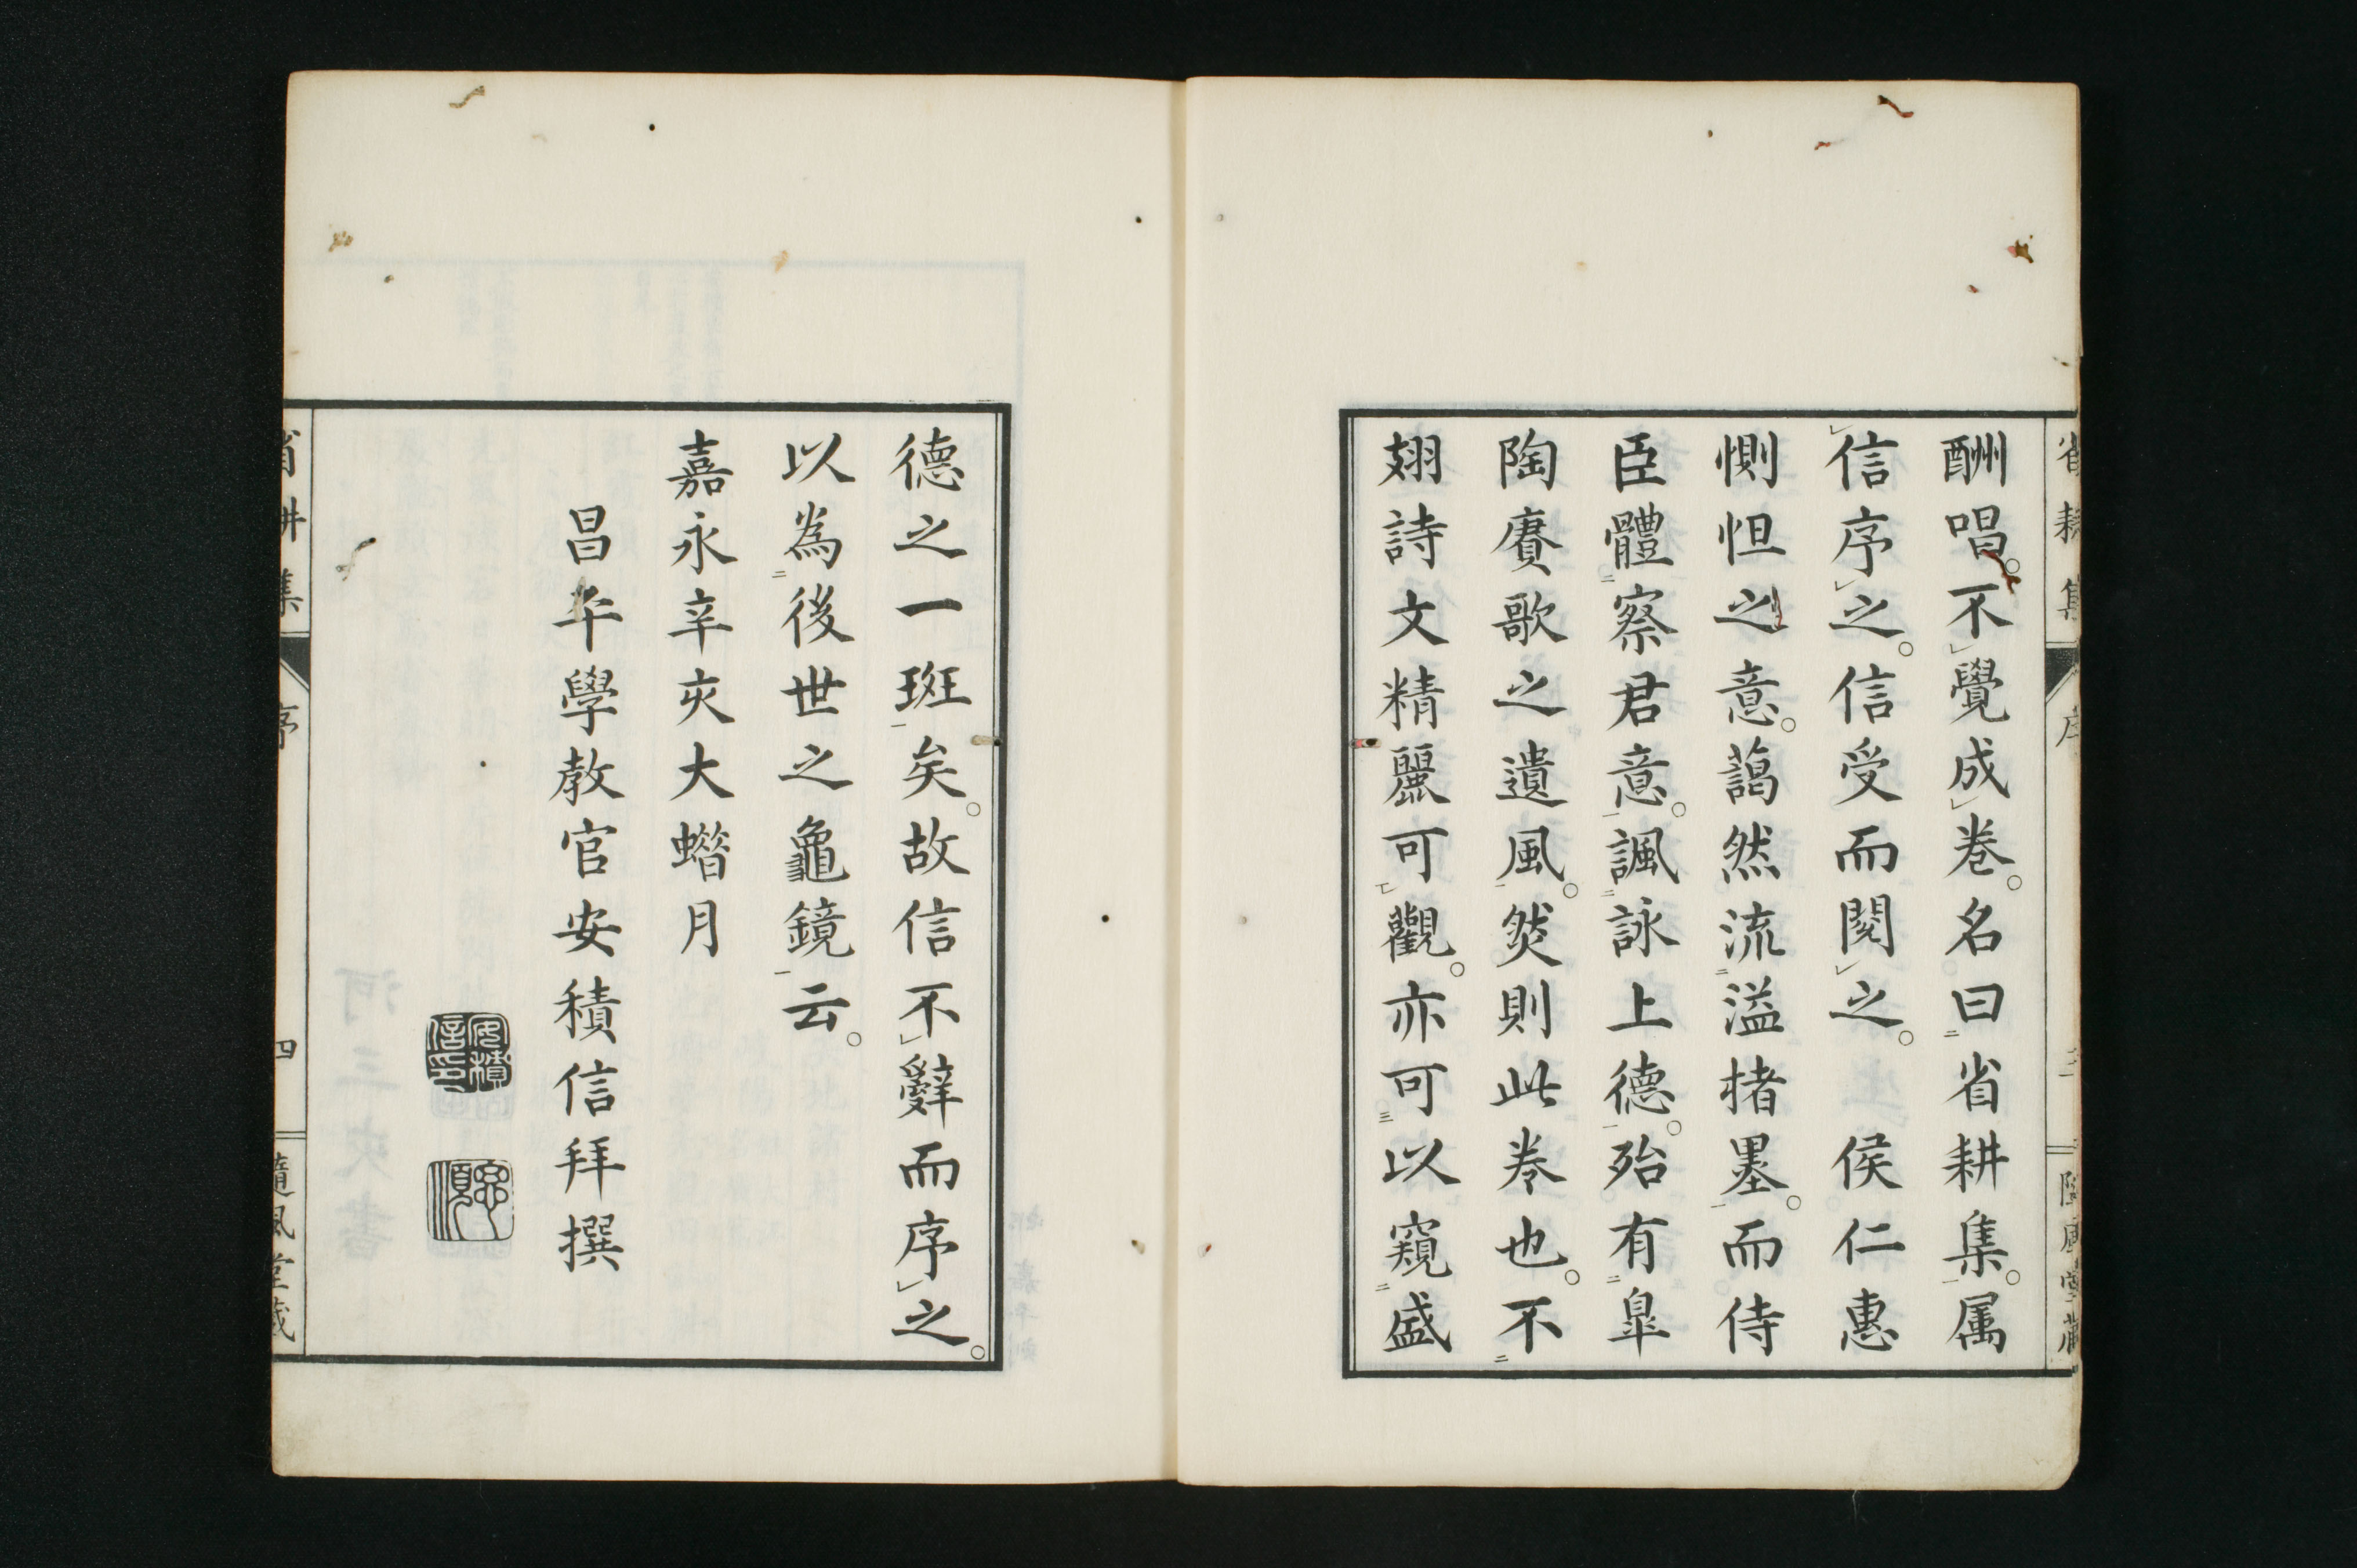 酬唱。不覺成卷。名曰省耕集。属
信序之。信受而閱之。 侯仁惠
惻怛之意。藹然流溢楮墨。而侍
臣體察君意。諷詠上德。殆有皐
陶賡歌之遺風。然則此卷也。不
翅詩文精麗可觀。亦可以窺盛
德之一斑矣。故信不辭而序之。
以為後世之龜鏡云。
嘉永辛亥大蜡月
昌平學教官安積信拜撰
安積信印
思順
省耕集 序 四 隨風堂藏